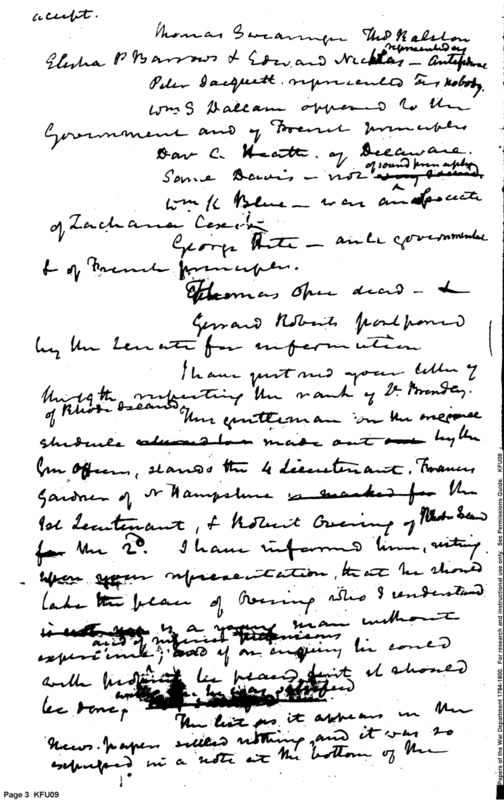 accept.
Thomas Swearinger Thos Ralston
represented as
Elisha P Barrows & Edward Nicklas – Antifederal
Peter Jacquett. represented as nobody.
Wm S Dallam opposed to the
Government and of French principles
Dav C. Heath. of Delaware.
of sound principles
Same Davis – not
Wm K Blue – was an associate
of Zacharia Coxe
George Hite – anti governmental
& of French principles.
Thomas Opie dead – &
Gerrard Roberts postponed
by the Senate for information
I have just recd your letter of
the 19th respecting the rank of Lt. Brenday.
of Rhode Island
This gentleman on the original
schedule made out by the
Gen Officers, stands the 4 Lieutenant. Francis
Gardner of N Hampshire is marked for the
1st Lieutenant, & Robert Overing of Rhode Island
for the 2d. I have informed him, resting
upon your representation, that he should
take the place of Overing who I understand
is a young man without
and of inferior pretensions
experience; and if on enquiry he could
with propriety be placed first it should
be done,
The list as it appears in the
News-papers settled nothing, and it was so
expressed in a note at the bottom of the
Page 3 KFU09
Papers of the War Department 1784-1800. For research and instructional use only. See Permissions Guide. KFU09